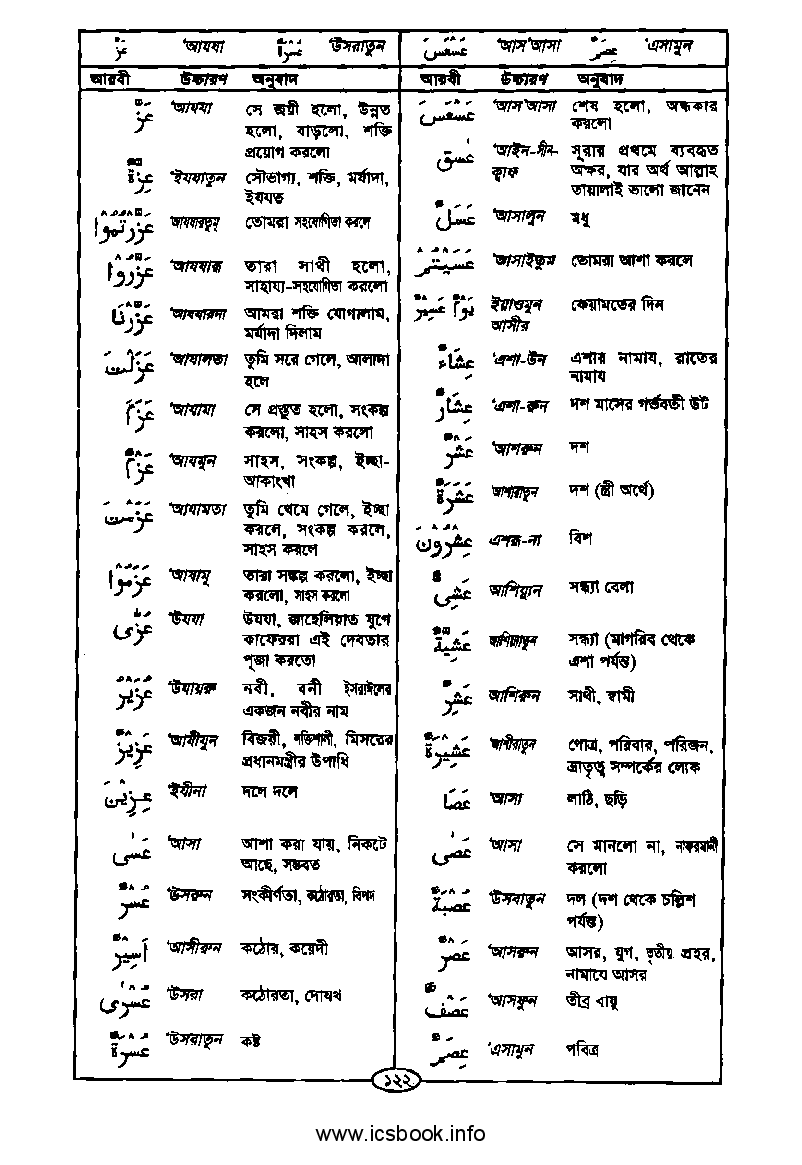 عَزَّ 'আযযা عُسْرَةٌ 'উসরাতুন
আরবী উচ্চারণ অনুবাদ
عَزَّ 'আযযা সে জয়ী হলো, উন্নত
হলো, বাড়লো, শক্তি
প্রয়োগ করলো
عِزَّةٌ 'ইযযাতুন সৌভাগ্য, শক্তি, মর্যাদা,
ইযযত
عَزَّرْتُمُوْا 'আযযারতুমু তোমরা সহযোগিতা করলে
عَزَّرُوْا 'আযযারু তারা সাথী হলো,
সাহায্য-সহযোগিতা করলো
عَزَّزْنَا 'আযযাযনা আমরা শক্তি যোগালাম,
মর্যাদা দিলাম
عَزَلْتَ 'আযালতা তুমি সরে গেলে, আলাদা
হলে
عَزَمَ 'আযামা সে প্রস্তুত হলো, সংকল্প
করলো, সাহস করলো
عَزْمٌ 'আযমুন সাহস, সংকল্প, ইচ্ছা-
আকাংখা
عَزَمْتَ 'আযামতা তুমি থেমে গেলে, ইচ্ছা
করলে, সংকল্প করলে,
সাহস করলে
عَزَمُوْا 'আযামূ তারা সঙ্কল্প করলো, ইচ্ছা
করলো, সাহস করলো
عُزّٰى 'উযযা উযযা, জাহেলিয়াত যুগে
কাফেররা এই দেবতার
পূজা করতো
عُزَيْرٌ 'উযায়রু নবী, বনী ইসরাঈলের
একজন নবীর নাম
عَزِيْزٌ 'আযীযুন বিজয়ী, শক্তিশালী, মিসরের
প্রধানমন্ত্রীর উপাধি
عِزِيْنَ 'ইযীনা দলে দলে
عَسٰى 'আসা আশা করা যায়, নিকটে
আছে, সম্ভবত
عُسْرٌ 'উসরুন সংকীর্ণতা, কঠোরতা, বিপদ
اَسِيْرٌ 'আসীরুন কঠোর, কয়েদী
عُسْرٰى 'উসরা কঠোরতা, দোযখ
عُسْرَةٌ 'উসরাতুন কষ্ট
عَسْعَسَ 'আস'আসা عِصَمٌ 'এসামুন
আরবী উচ্চারণ অনুবাদ
عَسْعَسَ 'আস'আসা শেষ হলো, অন্ধকার
করলো
عٓسٓقٓ 'আইন-সীন- সূরার প্রথমে ব্যবহৃত
ক্বাফ অক্ষর, যার অর্থ আল্লাহ
তায়ালাই ভালো জানেন
عَسَلٌ 'আসালুন মধু
عَسَيْتُمْ 'আসাইতুম তোমরা আশা করলে
يَوْمٌ عَسِيْرٌ ইয়াওমুন কেয়ামতের দিন
আসীর
عِشَاءٌ 'এশা-উন এশার নামায, রাতের
নামায
عِشَارٌ 'এশা-রুন দশ মাসের গর্ভবতী উট
عَشْرٌ 'আশরুন দশ
عَشَرَةٌ 'আশারাতুন দশ (স্ত্রী অর্থে)
عِشْرُوْنَ এশরূ-না বিশ
عَشِىٌّ আশিয়্যুন সন্ধ্যা বেলা
عَشِيَّةٌ আশিয়্যাতুন সন্ধ্যা (মাগরিব থেকে
এশা পর্যন্ত)
عَشِيْرٌ আশিরুন সাথী, স্বামী
عَشِيْرَةٌ 'আশীরাতুন গোত্র, পরিবার, পরিজন,
ভ্রাতৃত্ব সম্পর্কের লোক
عَصَا 'আসা লাঠি, ছড়ি
عَصٰى 'আসা সে মানলো না, নাফরমানী
করলো
عُصْبَةٌ 'উসবাতুন দল (দশ থেকে চল্লিশ
পর্যন্ত)
عَصْرٌ 'আসরুন আসর, যুগ, তৃতীয় প্রহর,
নামাযে আসর
عَصْفٌ 'আসফুন তীব্র বায়ু
عِصَمٌ 'এসামুন পবিত্র
১২২
www.icsbook.info